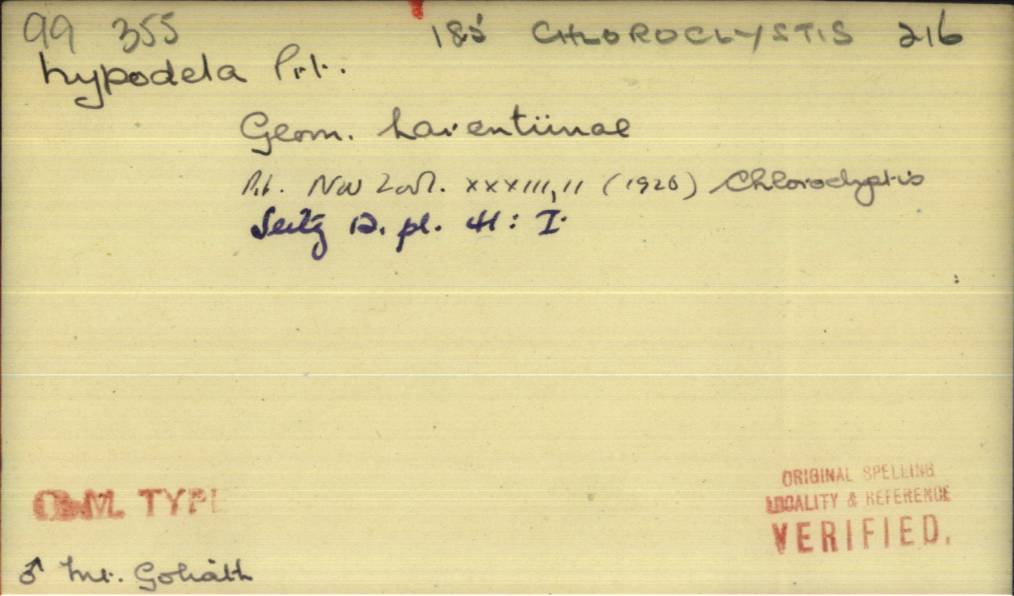 99 355 185 CHLOROCLYSTIS 216
hypodela Prt.
Geom. Larentiinae
Prt. Nov Zool. XXXIII, 11 (1926) Chloroclystis
Seitz 12. pl. 41: I.
B.M. TYPE
ORIGINAL SPELLING
LOCALITY & REFERENCE
VERIFIED.
♂ Mt. Goliath